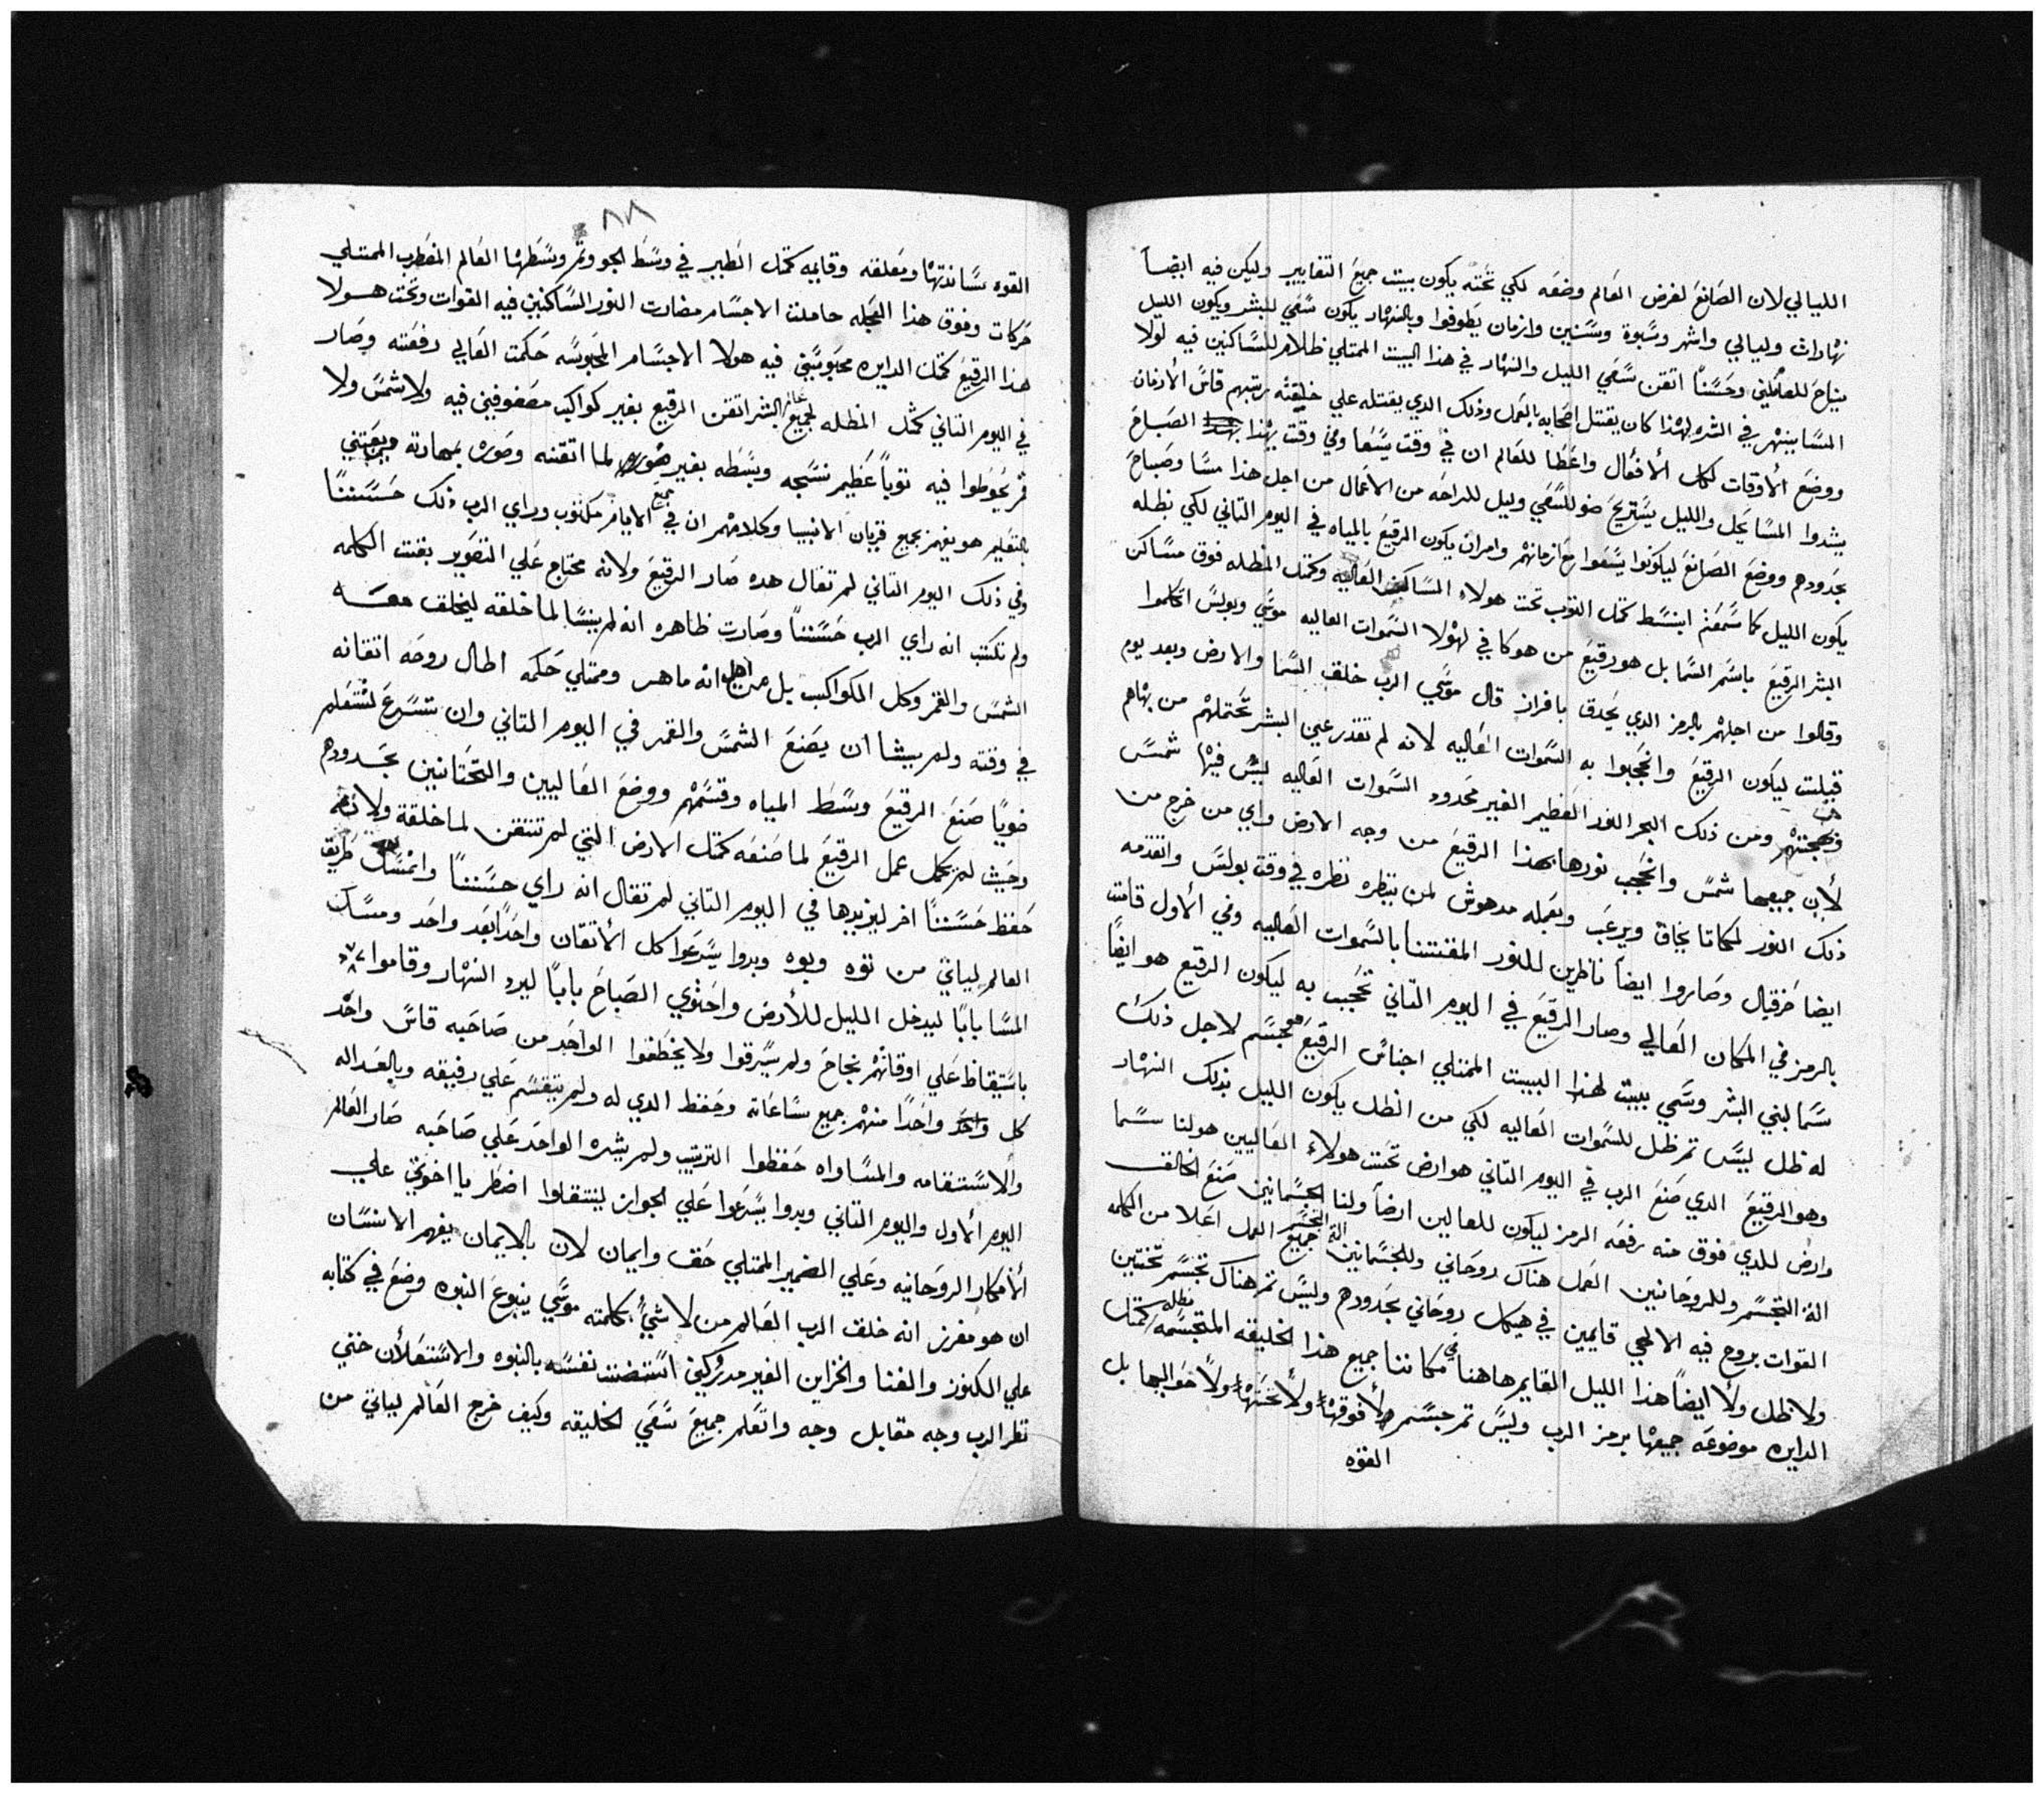 الليالي لان الصَانعَ لغرض العَالم وضعَه لكي تحَته يكون ببيت جميعَ التغايير وليكن فيه ايضاً
نهاراتْ وليالي واشهر وسَبوة وسَنين وازمان يَطوفوا وبالنهار يكون سَعَي للبشر ويكون الليل
ينياحَ للعمالين وحَسَناً اتقن سَعَي الليل والنهار في هذا البيت الممتلي ظلام للسَاكنين فيه لولا
المسَا ينتهر في الشره لهذا كان يقتتل اصحَابه بالعَمل وذلك الدي يقتتله علي خليقته رتبهم قاسَ الأزمان
ووضعَ الأوقات لكل الأفعال واعَطا للعَالم ان في وقت يسَعَا وفي وقت يهدا الصَباحَ
يشدوا المسَا يَحل والليل يسَتريحَ ضو للسَعَي وليل للراحَه من الاعَمال من اجل هذا مسَا وصَباحَ
بحَدودهم ووضعَ الصَانعَ ليكونوا يسَعَوا معَ ازمانهم وامر ان يكون الرقيعَ بالمياه في اليوم التاني لكي بظله
يكون الليل كما سَمعَتم ابنسَط كمتل التوب تحَت هولاء المسَاكن العَاليه وكمتل المظله فوق مسَاكن
البشر الرقيعَ باسَم السَما بل هو رقيعَ من هو كافي لهولا السَموات العاليه موسَي وبولسَ اتكلموا
وقالوا من اجلهم بالرمز الدي يَحدق بافراز قال موسَي الرب خلق السَما والارض وبعد يوم
قبلت ليكون الرقيعَ وانحَجبوا به السَموات العَاليه لانه لم تقدر عين البشر تحَتملهم من بهاهم
وبهجتهم ومن ذلك البحر النور العَظيم الغير محَدود السَموات العَاليه ليسَ فيها شمسَ
لأن جميعها شمسَ وانحَجب نورها بهذا الرقيعَ من وجه الارض وراي من خرج من
ذلك النور لمكاننا يخاف ويرعَب وبعَمله مدهوش لمن ينظره نظره في وقت بولسَ واتقدمه
ايضا حَزقيال وصَاروا ايضاً ناظرين للنور المقتنا بالسَموات العَاليه وفي الأول قامت
بالرمز في المكان العَالي وصار الرقيعَ في اليوم التاني تحَجب به ليكون الرقيع هو ايضاً
سَما لبني البشر وسَمي ببيت لهذا البيت الممتلي اجناسَ الرقيعَ هو مجسَم لاجل ذلك
له ظل ليسَ تم ظل للسَموات العَاليه لكي من الظل يكون الليل بذلك النهار
وهو الرقيعَ الدي صَنعَ الرب في اليوم التاني هو ارض تحَت هولاء العَاليين هو لنا سَما
وارض للدي فوق منه رفعَه الرمز ليكون للعالين ارضاً ولنا الجسَمانيين صَنعَ الخالق
الة التجسَم وللروحَانين العَمل هناك روحَاني وللجسَمانين الة التجسَم جميعَ العمل اعَلا من الكلمه
القوات بروح فيه الالهي قايمين في هيكل روحَاني بحَدودهم وليسَ تم هناك تجسَم تحَتين
ولا ظل ولأ ايضاً هذا الليل القايم هاهنا في مكاننا جميع هذا الخليقه المتجسَمه مظله كمتل
الدايره موضوعَه جميعَها برمز الرب وليسَ تم جسَم لأ فوقها ولأ تحَتها ولأ حَواليها بل
القوه
٨٨
القوه سَاندتها ومَعلقه وقايمه كمتل الطير في وسَط الجو وتم وسَطها العَالم المضطرب الممتلي
حَركات وفوق هذا العَجله حاملت الاجسَام مضارت النور السَاكنين فيه القوات وتحَت هولا
هذا الرقيعَ كمتل الدايره محَبوسَين فيه هولا الاجسَام المحَبوسَه حَكمت العَالي رفعَته وصَار
في اليوم التاني كمتل المظله لجميع البشر اتقن الرقيع بغير كواكب مصَفوفين فيه ولا شمسَ ولا
قمر يحَوطوا فيه توباً عَظيم نسَجه وبسَطه بغير لما اتقنه وصَوره بمهارته ويعَتني
بالتعَليم هو يفهم بجميع قريان الانبيا وكلامهم ان في جميع الايام مكتوب وراي الرب ذلك حَسَننا
وفي ذلك اليوم التاني لم تقال هده صَار الرقيعَ ولانه محتاج عَلي التصَوير بقت الكلمه
ولم تكتب انه راي الرب حَسَنناً وصَارت ظاهره انه لم ينسَا لما خلقه ليخلق معَه
الشمسَ والقمر وكل الكواكب بل من اجل انه ماهر وممتلي حَكمه اطال روحَه اتقانه
في وقته ولم يشا ان يَصَنعَ الشمسَ والقمر في اليوم التاني وان تسَرعَ لتتعَلم
ضوياً صَنعَ الرقيعَ وسَط المياه وقسَمهم ووضعَ العَاليين والتحَتانين بحَدودهم
وحَيث لم يكمل عمل الرقيعَ لما صَنعَه كمتل الارض التي لم تتقن لما خلقة ولانه
حَفظ حَسَنناً اخر ليزيدها في اليوم التاني لم تقال انه راي حسَنناً وامسَك طريق
العالم لياتي من توه وبوه وبدوا يسَرعَوا كل الأتقان واحَداً بَعَد واحَد ومسَك
المسَا باباً ليدخل الليل للأرض واحَتوي الصَباحَ باباً ليرد النهار وقاموا
باسَتيقاظ عَلي اوقاتهم بنجاحَ ولم يسَرقوا ولا يخطفوا الواحَد من صَاحَبه قاسَ واحَد
كل واحَداً منهم جميع سَاعَاته وحَفظ الدي له ولم يتقسَم عَلي رفيقه وبالعَداله
والاسَتقامه والمسَاواه حَفظوا الترتيب ولم يشره الواحَد عَلي صَاحَبه صَار العَالم
اليوم الأول واليوم التاني وبدوا يسَرعَوا عَلي الجواز لينتقلوا اضطر يا اخوتي علي
الأفكار الروحَانيه وعَلي الضمير الممتلي حَق وايمان لان بالايمان يفهم الانسَان
ان هو مفرز انه خلق الرب العَالم من لا شيً بكلمته موسَي ينبوعَ النبوه وضعَ في كتابه
علي الكنوز والغنا والخزاين الغير مدروكين اسَتضت نفسَه بالنبوه والاسَتعَلأن حتي
نظر الرب وجه مقابل وجه واتعَلم جميعَ سَعَي الخليقه وكيف خرج العَالم لياتي من